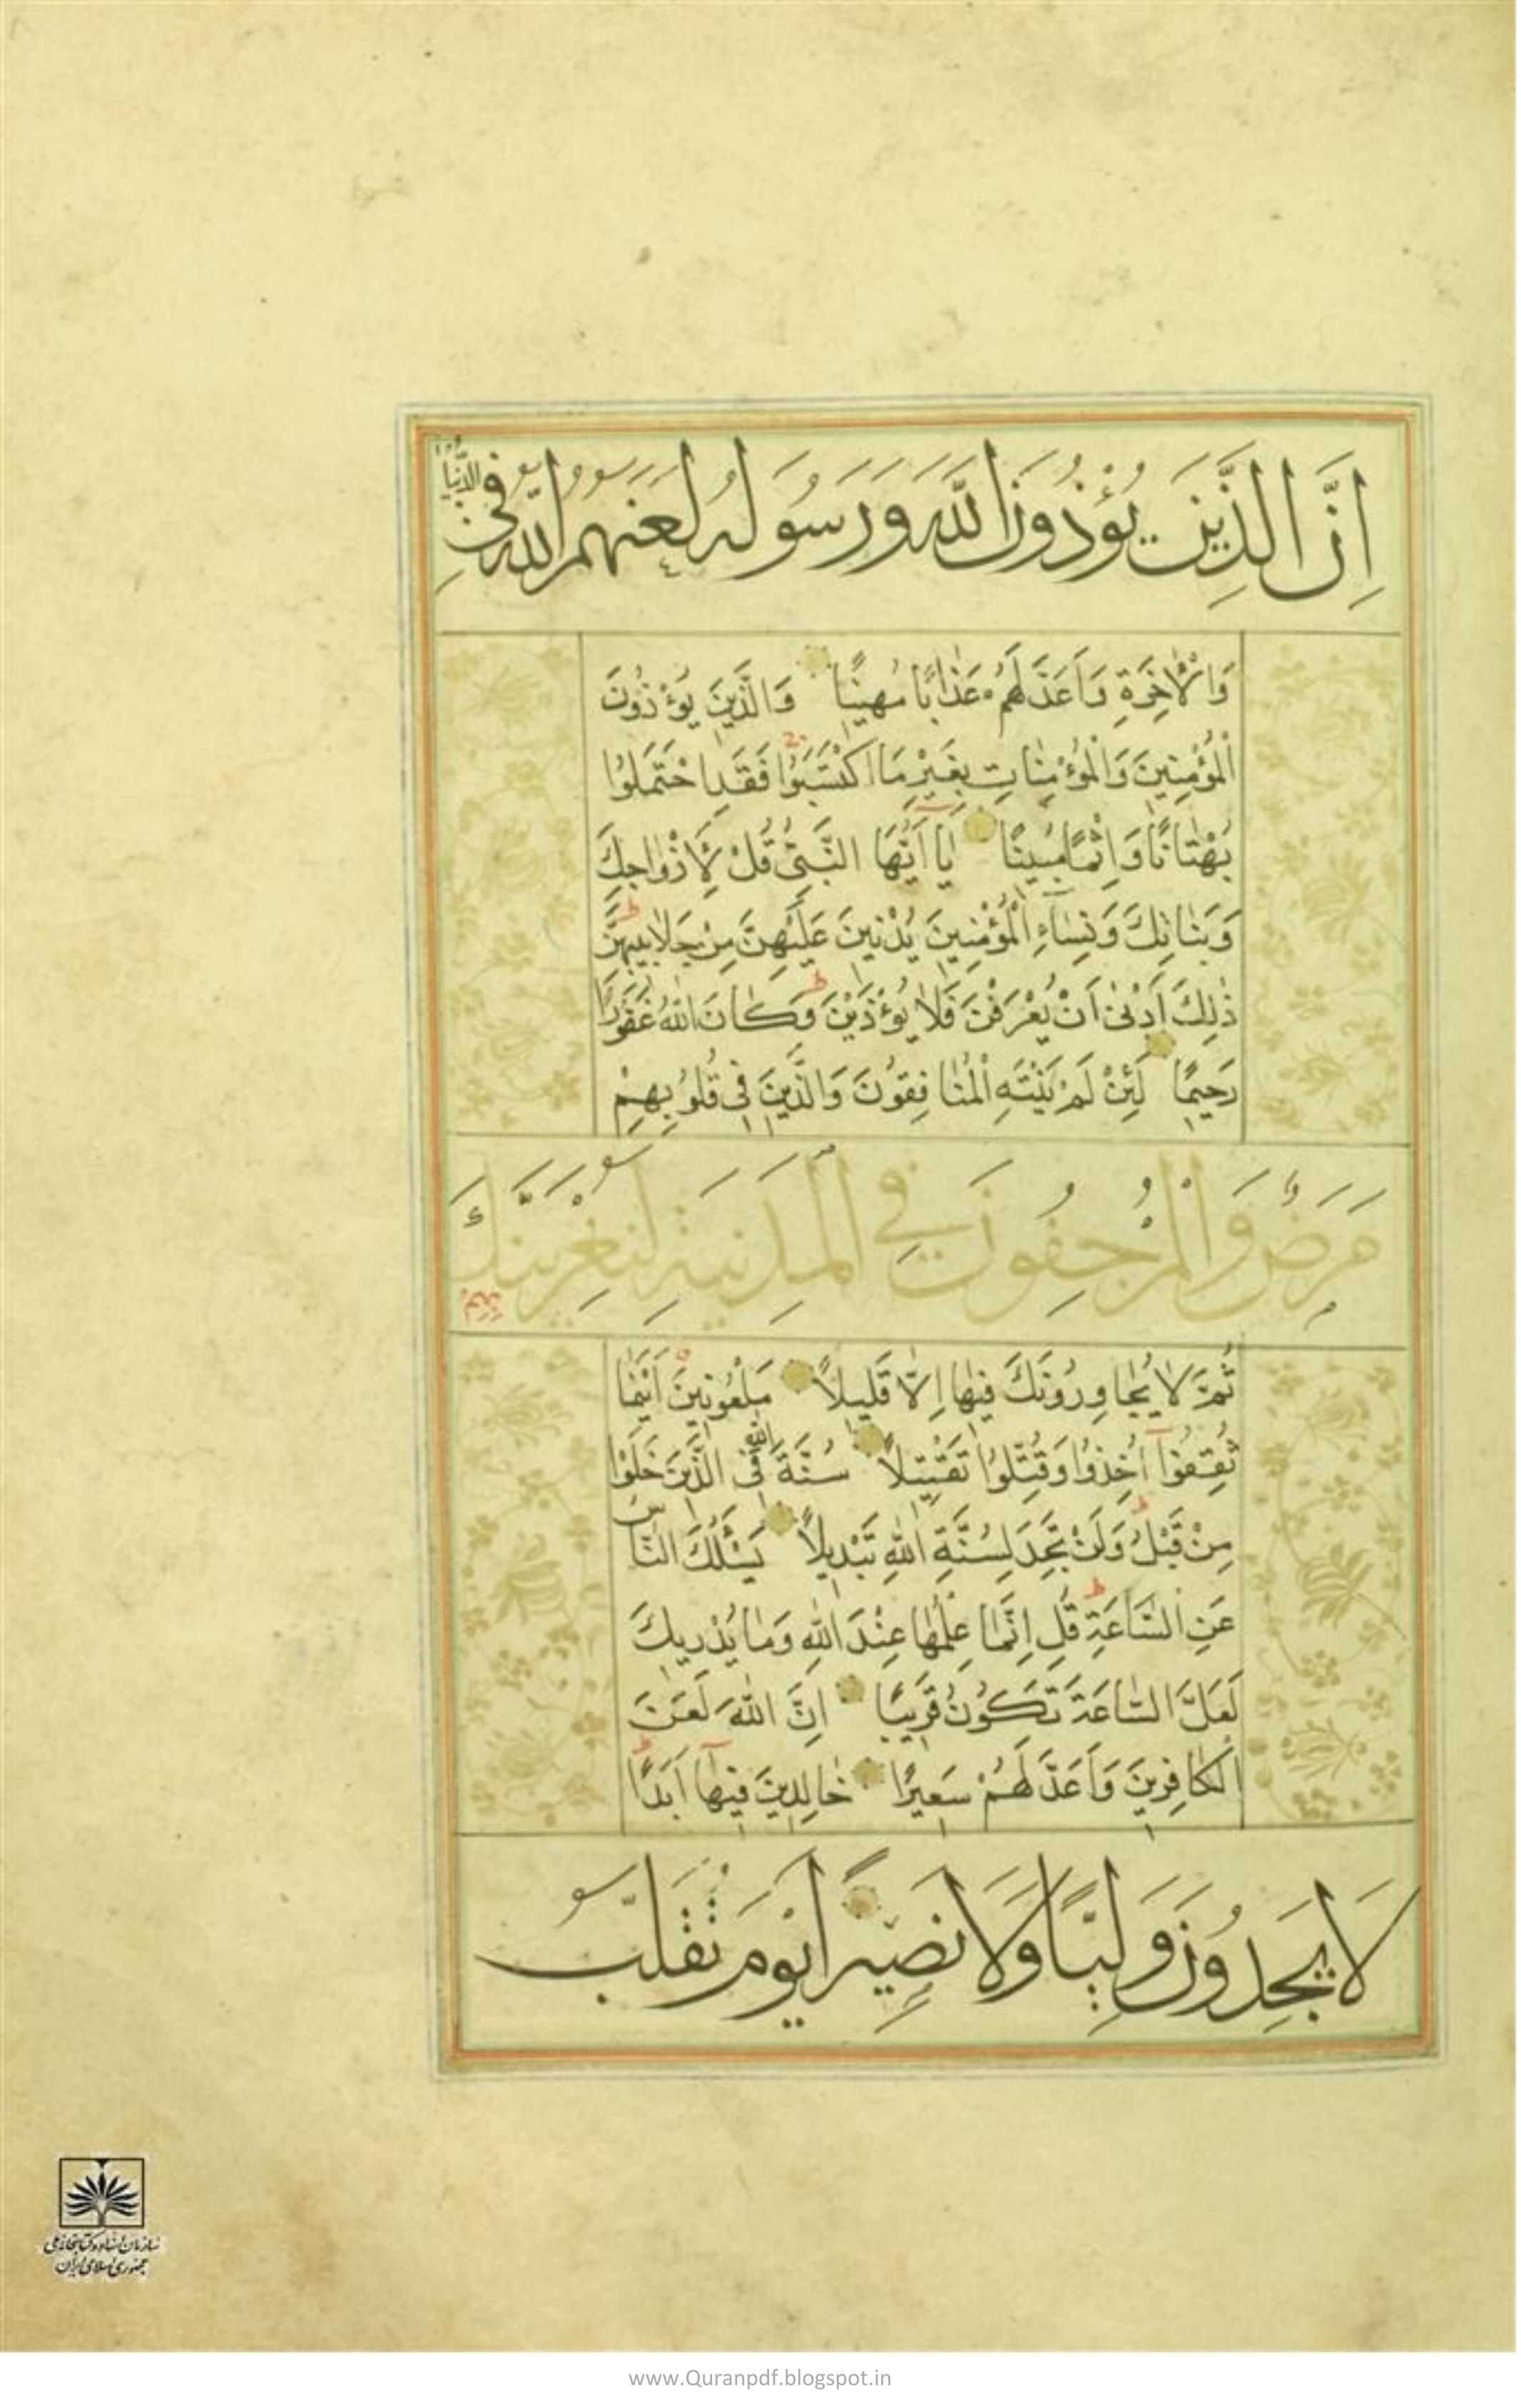 اِنَّ الَّذِينَ يُؤْذُونَ اللّٰهَ وَرَسُولَهُ لَعَنَهُمُ اللّٰهُ فِي الدُّنْيَا
وَالْاٰخِرَةِ وَاَعَدَّ لَهُمْ عَذٰابًا مُهِينًا وَالَّذِينَ يُؤْذُونَ
الْمُؤْمِنِينَ وَالْمُؤْمِنٰاتِ بِغَيْرِ مَا اكْتَسَبُوا فَقَدِ احْتَمَلُوا
بُهْتٰانًا وَاِثْمًا مُبِينًا يٰا اَيُّهَا النَّبِيُّ قُلْ لِاَزْوٰاجِكَ
وَبَنٰاتِكَ وَنِسٰاءِ الْمُؤْمِنِينَ يُدْنِينَ عَلَيْهِنَّ مِنْ جَلٰابِيبِهِنَّ
ذٰلِكَ اَدْنىٰ اَنْ يُعْرَفْنَ فَلٰا يُؤْذَيْنَ وَكٰانَ اللّٰهُ غَفُورًا
رَحِيمًا لَئِنْ لَمْ يَنْتَهِ الْمُنٰافِقُونَ وَالَّذِينَ فِي قُلُوبِهِمْ
مَرَضٌ وَالْمُرْجِفُونَ فِي الْمَدِينَةِ لَنُغْرِيَنَّكَ بِهِمْ
ثُمَّ لٰا يُجٰاوِرُونَكَ فِيهٰا اِلّٰا قَلِيلاً مَلْعُونِينَ اَيْنَمٰا
ثُقِفُوا اُخِذُوا وَقُتِّلُوا تَقْتِيلاً سُنَّةَ اللّٰهِ فِي الَّذِينَ خَلَوْا
مِنْ قَبْلُ وَلَنْ تَجِدَ لِسُنَّةِ اللّٰهِ تَبْدِيلاً يَسْئَلُكَ النّٰاسُ
عَنِ السّٰاعَةِ قُلْ اِنَّمٰا عِلْمُهٰا عِنْدَ اللّٰهِ وَمٰا يُدْرِيكَ
لَعَلَّ السّٰاعَةَ تَكُونُ قَرِيبًا اِنَّ اللّٰهَ لَعَنَ
الْكٰافِرِينَ وَاَعَدَّ لَهُمْ سَعِيرًا خٰالِدِينَ فِيهٰا اَبَدًا
لَا يَجِدُونَ وَلِيًّا وَلَا نَصِيرًا يَوْمَ تُقَلَّبُ
سازمان اسناد و کتابخانه ملی
جمهوری اسلامی ایران
www.Quranpdf.blogspot.in